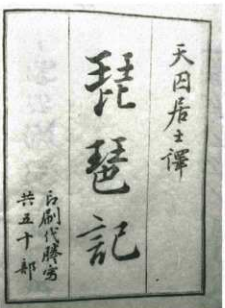 天囚居士譯
琵琶記
印刷代謄寫
共五十部